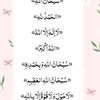 «سُبْحَانَ اللَّهِ»
«الْحَمْدُ لِلَّهِ»
«لَا إِلَهَ إِلَّا اللَّهُ»
«اللَّهُ أَكْبَرُ»
«سُبْحَانَ اللَّهِ وَبِحَمْدِهِ»
«سُبْحَانَ اللَّهِ الْعَظِيمِ»
«لَا حَوْلَ وَلَا قُوَّةَ إِلَّا بِاللَّهِ»